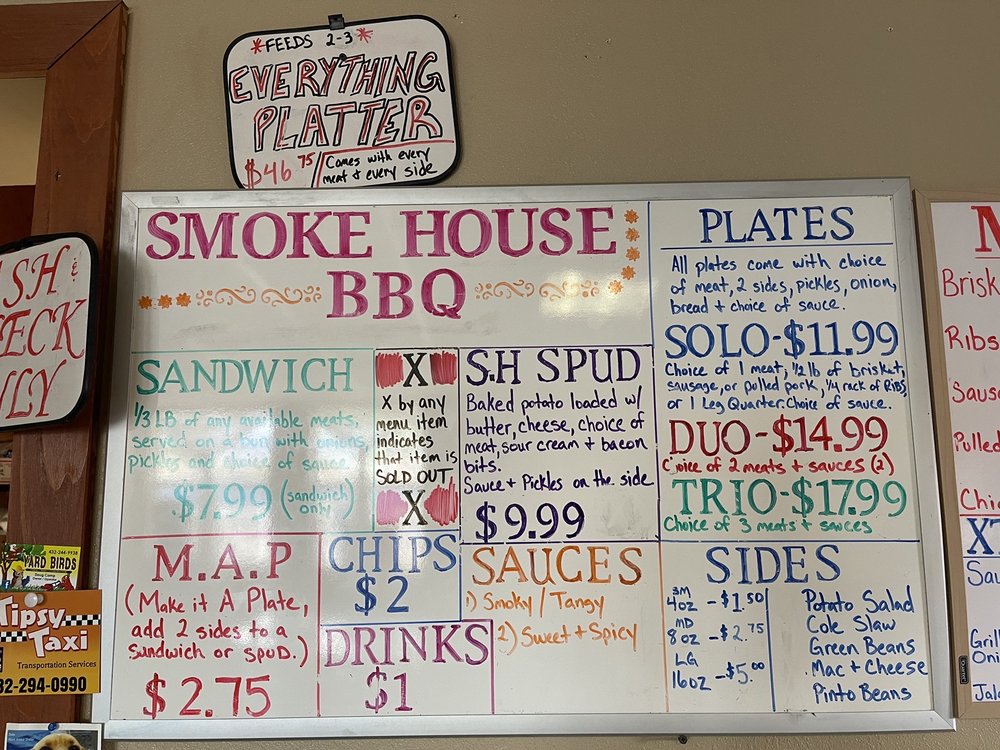 *FEEDS 2-3*
EVERYTHING
PLATTER
$46.75 / Comes with every
meat + every side
SH &
ECK
LY
SMOKE HOUSE
BBQ
SANDWICH
1/3 LB of any available meats,
served on a bun with onions,
pickles and choice of sauce
$7.99 (sandwich
only)
X
X by any
menu item
indicates
that item is
SOLD OUT
X
S.H SPUD
Baked potato loaded w/
butter, cheese, choice of
meat, sour cream + bacon
bits.
Sauce + Pickles on the side
$9.99
PLATES
All plates come with choice
of meat, 2 sides, pickles, onion,
bread + choice of sauce.
SOLO-$11.99
Choice of 1 meat, 1/2 lb of brisket,
sausage, or pulled pork, 1/4 rack of Ribs,
or 1 Leg Quarter. Choice of sauce.
DUO-$14.99
Choice of 2 meats + sauces (2)
TRIO-$17.99
Choice of 3 meats + sauces
M.A.P
(Make it A Plate,
add 2 sides to a
Sandwich or spuD.)
$2.75
CHIPS
$2
DRINKS
$1
SAUCES
1) Smoky / Tangy
2) Sweet + Spicy
SIDES
SM
4oz - $1.50
MD
8 oz - $2.75
LG
16oz - $5.00
Potato Salad
Cole Slaw
Green Beans
Mac + Cheese
Pinto Beans
M
Brisk
Ribs
Saus
Pulled
Chic
XT
Sau
Gril
Oni
Jala
432-244-9938
YARD BIRDS
Doug Camp
Tipsy
Taxi
Transportation Services
32-294-0990